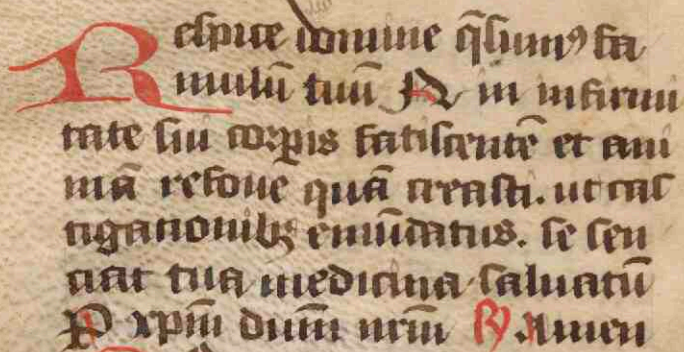 Respice domine q̄sumꝯ fa
mulū tuū N in infirmi
tate sui corꝑis fatiscentē et ani
mā refoue quā creasti. ut cas
tigationibꝫ emūdatus. se sen
ciat tua medicina saluatū
P xp̄m dnm̄ nrm̄ ℟ Amen